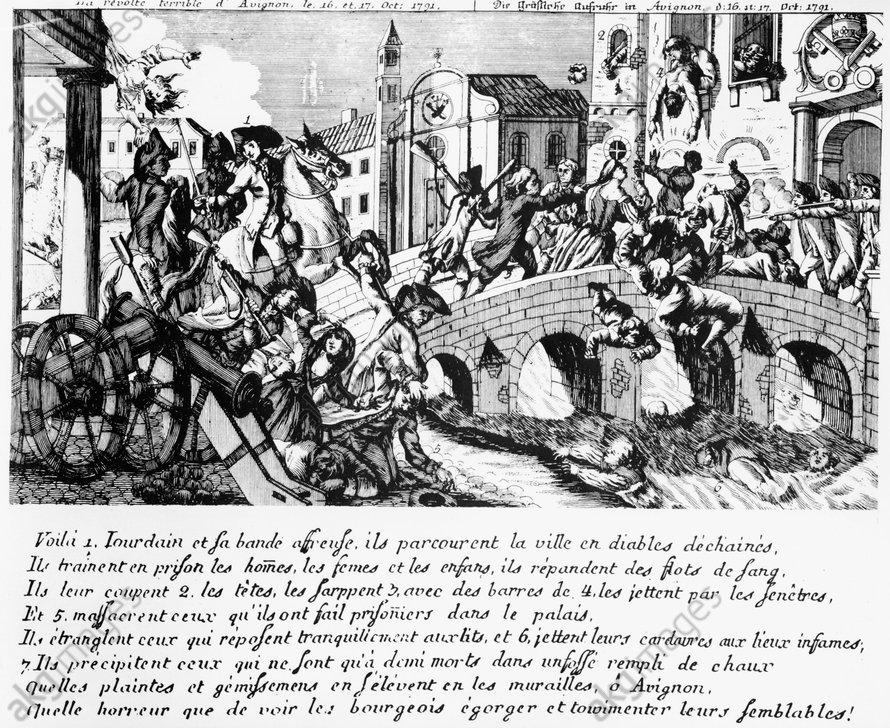 La révolte terrible d' Avignon, le. 16. et. 17. Oct: 1791. Die Gräsliche Aufruhr in Avignon, d: 16. u: 17. Oct: 1791.
1
2
5
Voilà 1. Iourdain et sa bande affreuse, ils parcourent la ville en diables déchainés,
Ils traînent en prison les hom̄es, les femes et les enfans, ils répandent des flots de sang,
Ils leur coupent 2. les têtes, les frappent 3, avec des barres de 4, les jettent par les fenêtres,
Et 5. massacrent ceux qu'ils ont fail prisoñiers dans le palais,
Ils étranglent ceux qui réposent tranquillement aux lits, et 6, jettent leurs cardavres aux lieux infames;
7 Ils précipitent ceux qui ne sont qu'à demi morts dans un fossé rempli de chaux
quelles plaintes et gémissemens en s'élévent en les murailles, ô Avignon,
Quelle horreur que de voir les bourgeois égorger et tourmenter leurs semblables!
akg images